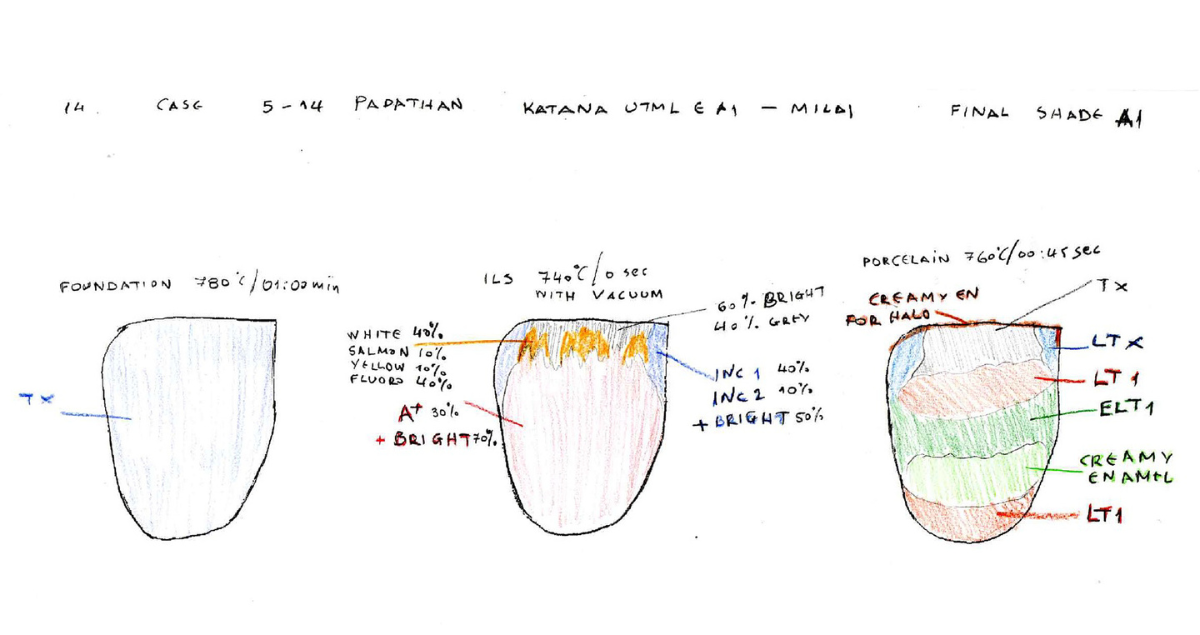 14. CASE 5-14 PAPATHAN KATANA UTML E A1 - MILAI FINAL SHADE A1
FOUNDATION 780°C/01:00 min
TX
ILS 740°C/0 sec
WITH VACUUM
WHITE 40%
SALMON 10%
YELLOW 10%
FLUORO 40%
A+ 30%
+ BRIGHT 70%
60% BRIGHT
40% GREY
INC 1 40%
INC 2 10%
+ BRIGHT 50%
PORCELAIN 760°C/00:45 sec
CREAMY EN
FOR HALO
TX
LTX
LT1
ELT1
CREAMY
ENAMEL
LT1